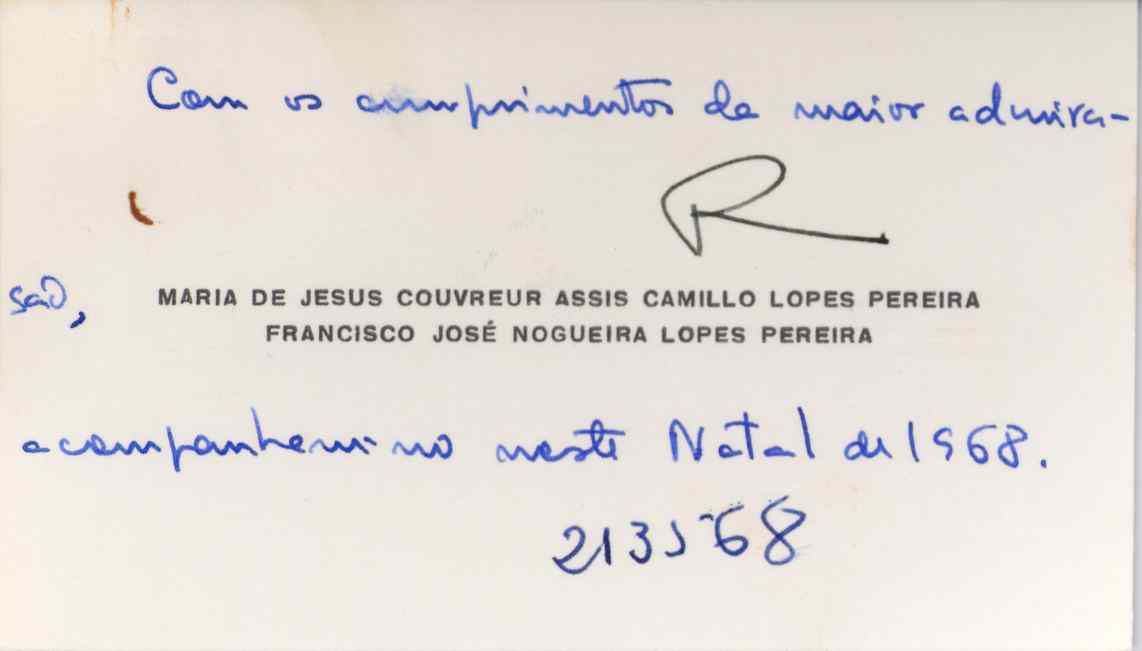 Com os cumprimentos da maior admira-
R
são,
MARIA DE JESUS COUVREUR ASSIS CAMILLO LOPES PEREIRA
FRANCISCO JOSÉ NOGUEIRA LOPES PEREIRA
acompanhem-no neste Natal de 1968.
213568